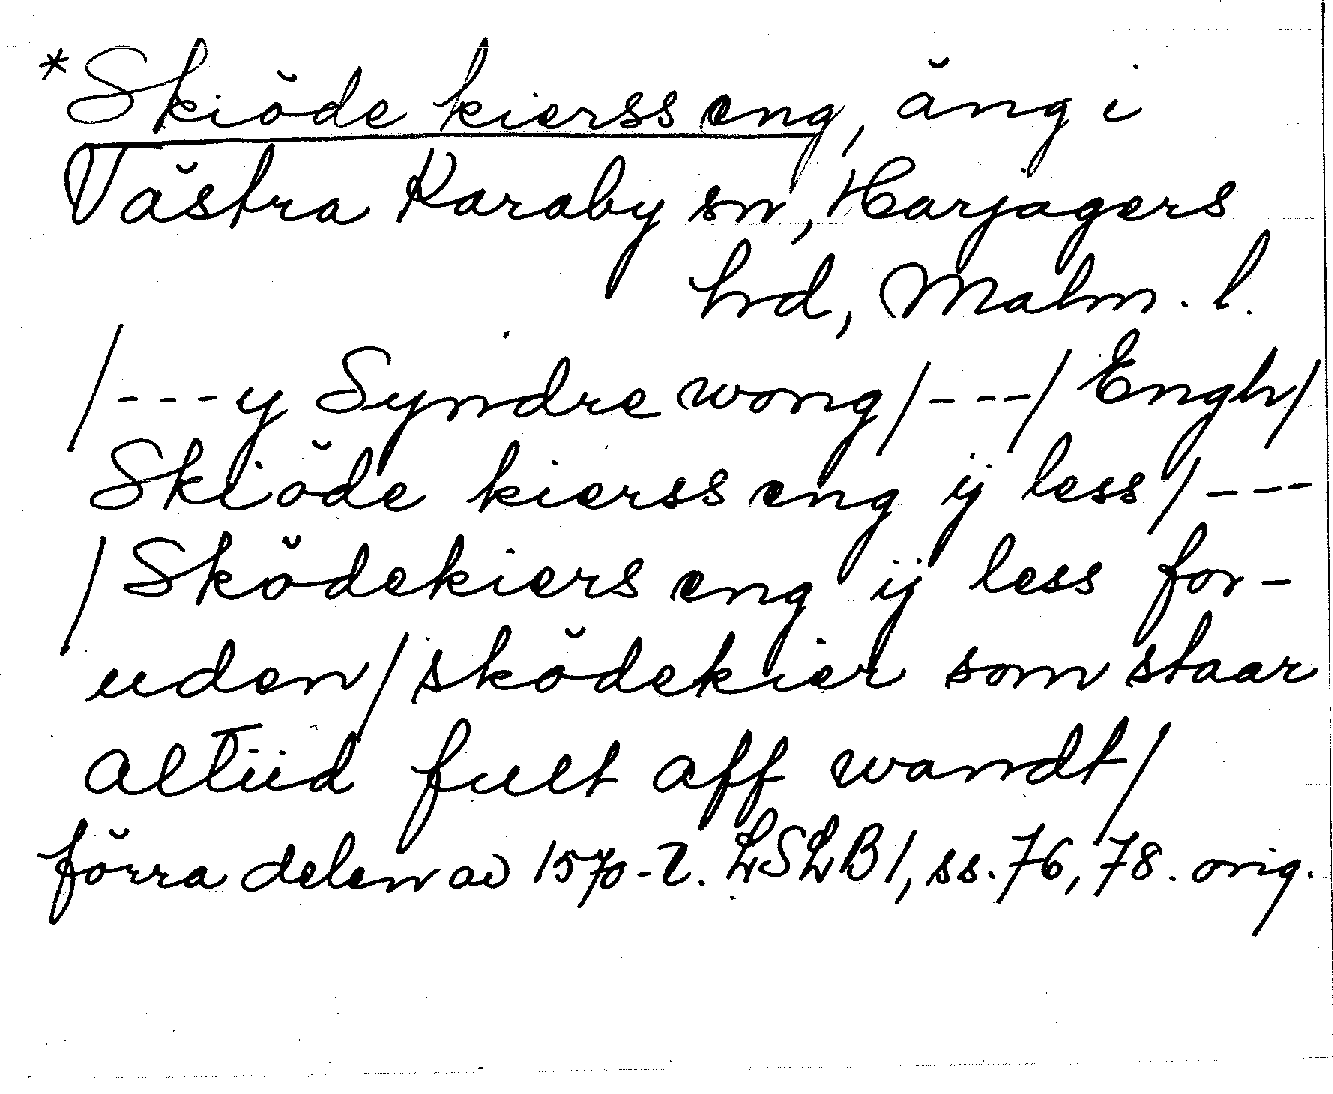 *Skiöde kierss eng, äng i
Västra Karaby sn, Harjagers
hrd, Malm. l.
/---y Syndre wong/---/Engh/
Skiöde kierss eng ij less/---
/Sködekiers eng ij less for-
uden/sködekier som staar
altiid fult aff wandt/
förra delen av 1570-t. LSLB 1, ss. 76, 78. orig.